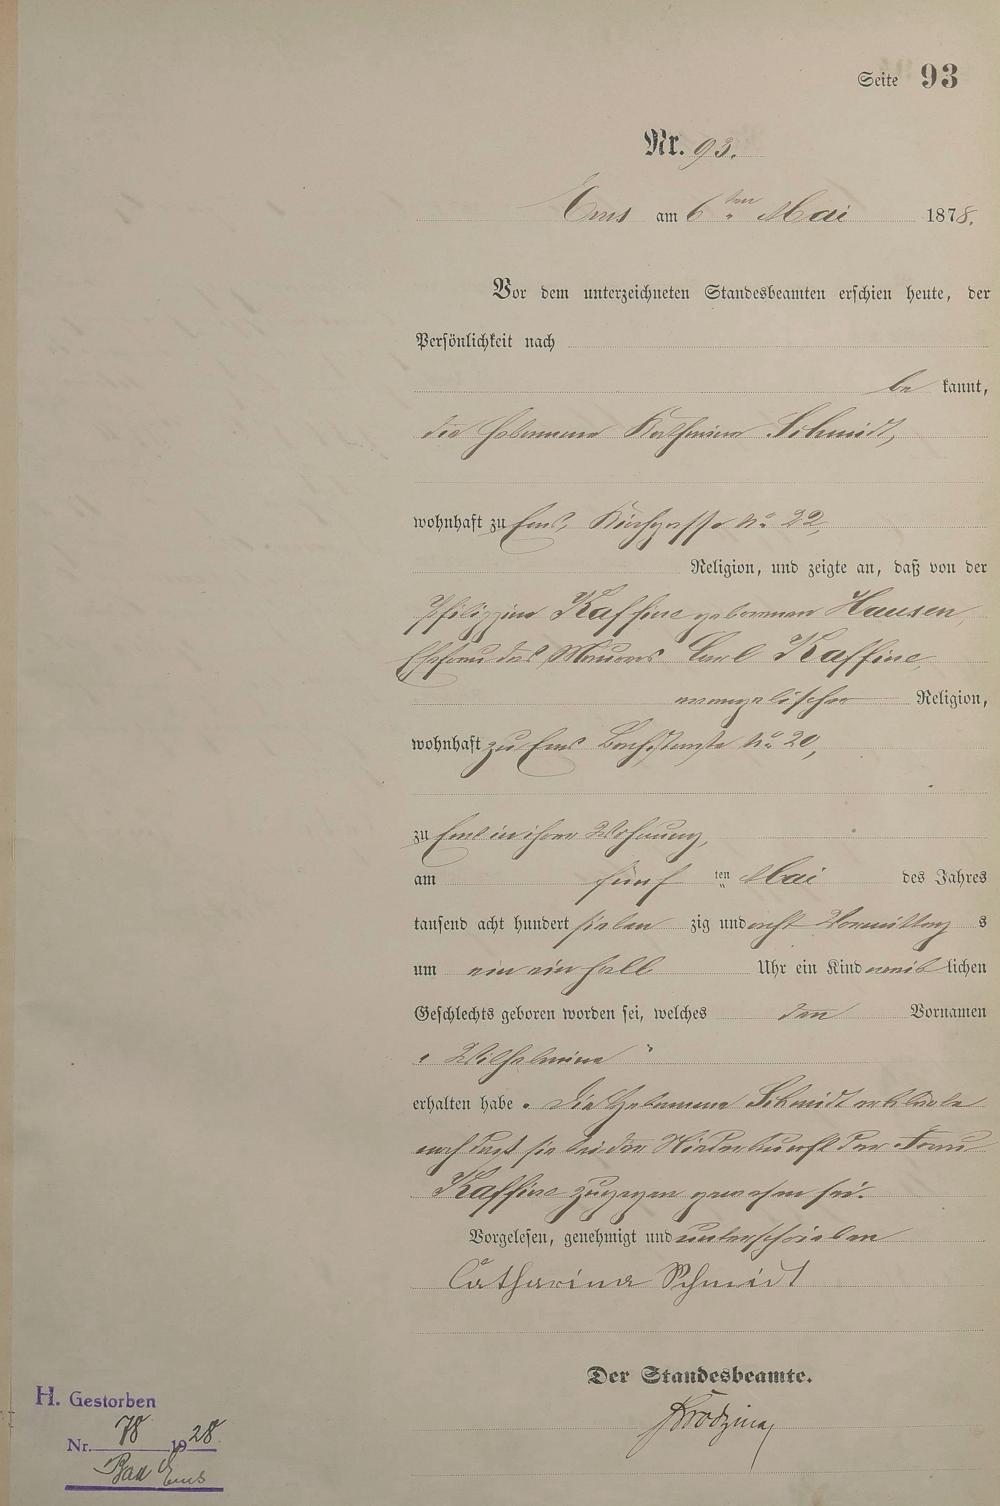 Seite 93
Nr. 93.
Ems am 6ten Mai 1878.
Vor dem unterzeichneten Standesbeamten erschien heute, der
Persönlichkeit nach
be kannt,
die Hebamme Katharina Schmidt,
wohnhaft zu Ems, Kirchgasse No. 22,
Religion, und zeigte an, daß von der
Philippine Kaffine geborenen Hausen,
Ehefrau des Maurers Carl Kaffine,
evangelischer Religion,
wohnhaft zu Ems No. 20,
zu Ems in ihrer Wohnung,
am fünf ten Mai des Jahres
tausend acht hundert sieben zig und acht Vormittag s
um ein ein halb Uhr ein Kind weib lichen
Geschlechts geboren worden sei, welches den Vornamen
„Wilhelmine“
erhalten habe. Die Hebamme Schmidt erklärte
noch daß sie bei der Niederkunft der Frau
Kaffine zugegen gewesen sei.
Vorgelesen, genehmigt und unterschrieben
Catharina Schmidt
Der Standesbeamte.
H. Gestorben
Nr. 78 1928
Bad Ems